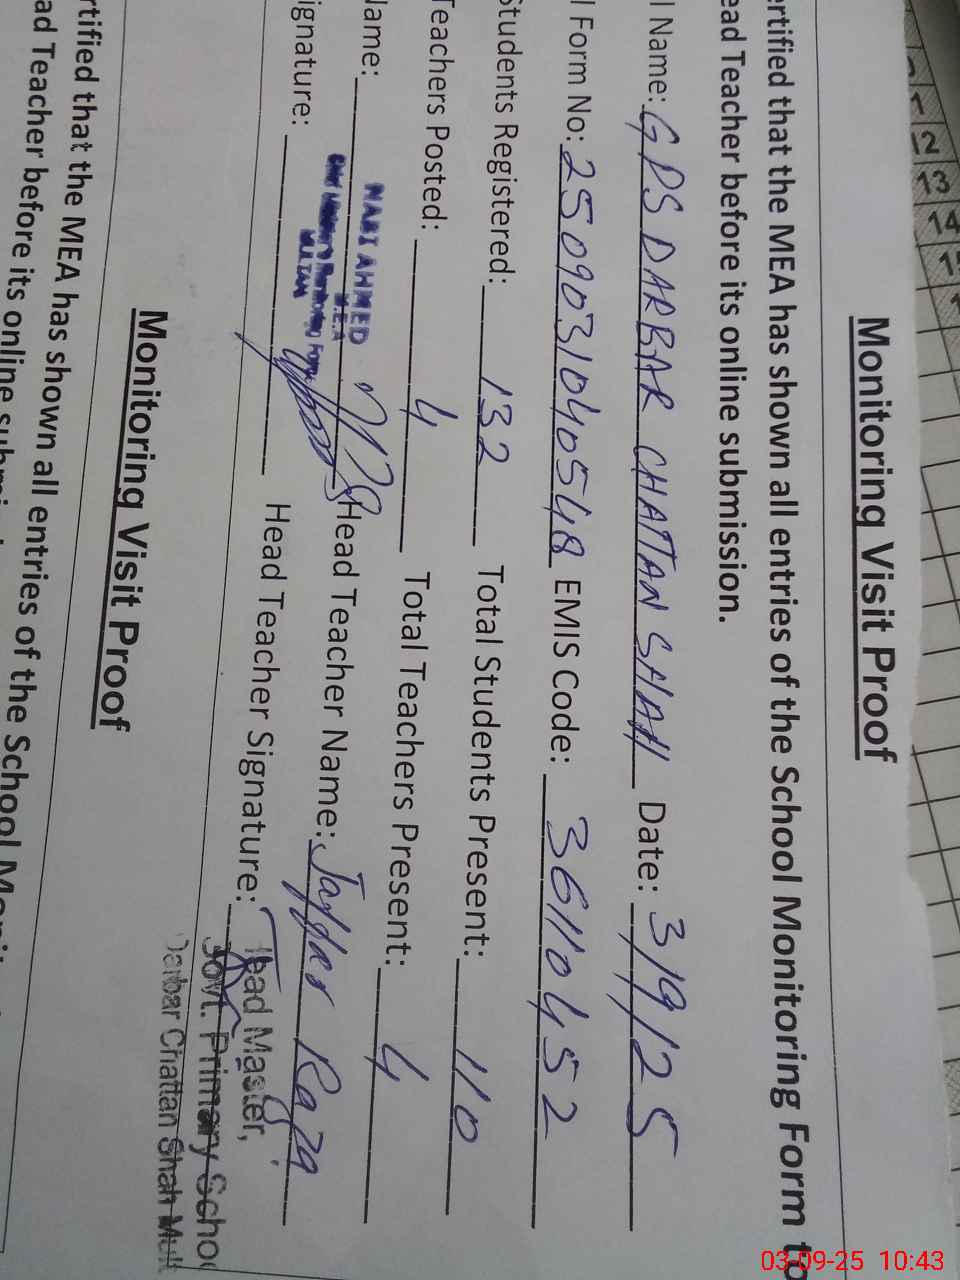 Monitoring Visit Proof
ertified that the MEA has shown all entries of the School Monitoring Form to
ead Teacher before its online submission.
l Name: GPS DARBAR CHATTAN SHAH Date: 3/9/25
l Form No: 2509031040548 EMIS Code: 36110452
Students Registered: 132 Total Students Present: 110
Teachers Posted: 4 Total Teachers Present: 4
Name: NABI AHMED M.E.A Head Teacher Name: Jaffar Raza
ignature: Head Teacher Signature:
Head Master,
Govt. Primary Schoo
Darbar Chattan Shah Mult
Monitoring Visit Proof
rtified that the MEA has shown all entries of the School Moni
ad Teacher before its online submi
03-09-25 10:43